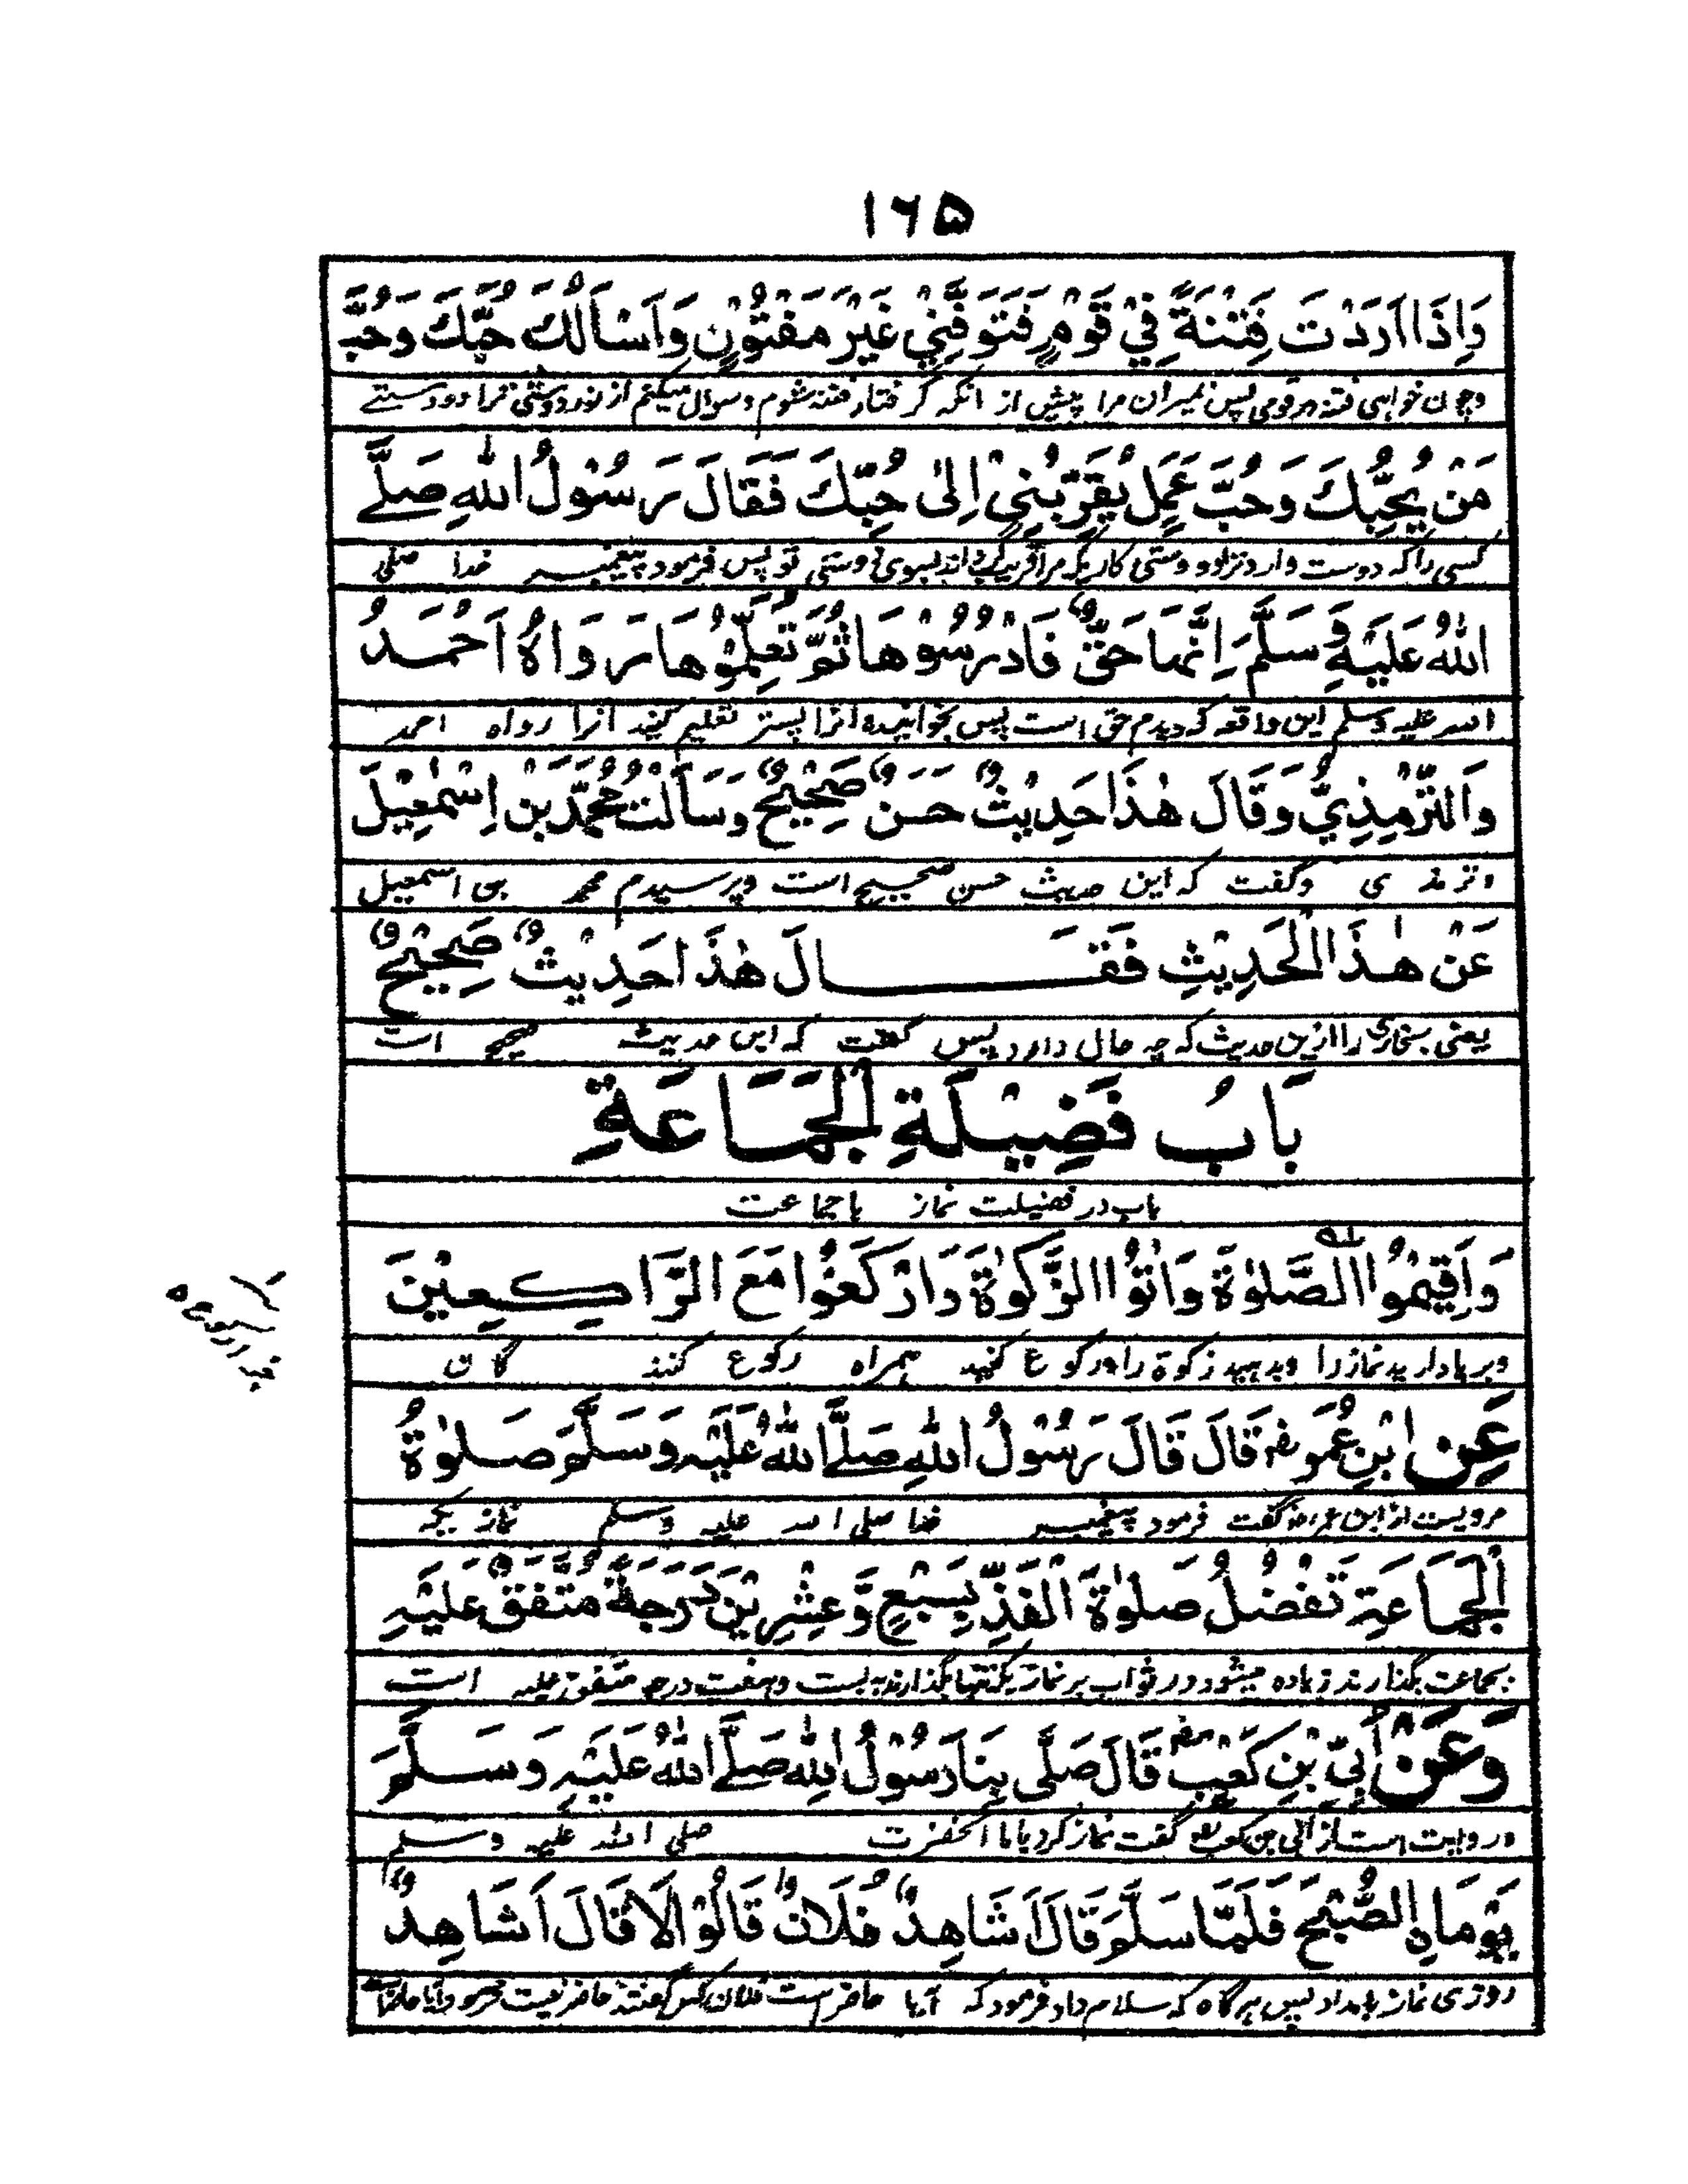 ۱۶۵
وَاِذَا اَرَدْتَ فِتْنَةً فِيْ قَوْمٍ فَتَوَفَّنِيْ غَيْرَ مَفْتُوْنٍ وَاَسْاَلُكَ حُبَّكَ وَحُبَّ
وچون خواهی فتنه در قومی پس بمیران مرا پیش از انکه گرفتار فتنه شوم وسوال میکنم از تو دوستی ترا ودوستے
مَنْ يُحِبُّكَ وَحُبَّ عَمِلٍ يُقَرِّبُنِيْ اِلىٰ حُبِّكَ فَقَالَ رَسُوْلُ اللّٰهِ صَلَّے
کسی را که دوست دارد ترا ودوستی کاریکه مرا بسوی دوستی تو پس فرمود پیغمبر خدا صلی
اللّٰهُ عَلَيْهِ وَسَلَّمَ اِنَّهَا حَقٌّ فَادْرُسُوْهَا ثُمَّ تَعَلِّمُوْهَا رَوَاهُ اَحْمَدُ
الله علیه وسلم این واقعه که دیدم حق است پس بخوانید انرا پستر تعلیم کنید انرا رواه احمد
وَالتِّرْمِذِيُّ وَقَالَ هٰذَا حَدِيْثٌ حَسَنٌ صَحِيْحٌ وَسَاَلْتُ مُحَمَّدَ بْنَ اِسْمٰعِيْلَ
وترمذی وگفت که این حدیث حسن صحیح است وپرسیدم محمد بن اسمعیل
عَنْ هٰذَا الْحَدِيْثِ فَقَالَ هٰذَا حَدِيْثٌ صَحِيْحٌ
یعنی بخاری را ازین حدیث که چه حال دارد پس گفت که این حدیث صحیح است
بَابُ فَضِيْلَةِ الْجَمَاعَةِ
باب در فضیلت نماز با جماعت
وَاَقِيْمُوا الصَّلٰوةَ وَاٰتُوا الزَّكٰوةَ وَارْكَعُوْا مَعَ الرَّاكِعِيْنَ
وبر پا دارید نماز را وبدهید زکوة را ورکوع کنید همراه رکوع کنندگان
عَنِ ابْنِ عُمَرَ رض قَالَ قَالَ رَسُوْلُ اللّٰهِ صَلَّے اللّٰهُ عَلَيْهِ وَسَلَّمَ صَلٰوةُ
مرویست از ابن عمر رض گفت فرمود پیغمبر خدا صلی الله علیه وسلم نمازیکه
الْجَمَاعَةِ تَفْضُلُ صَلٰوةَ الْفَذِّ بِسَبْعٍ وَّعِشْرِيْنَ دَرَجَةً مُتَّفَقٌ عَلَيْهِ
بجماعت بگذارند زیاده میشود در ثواب بر نمازیکه تنها بگذارند به بست وهفت درجه متفق علیه است
وَعَنْ اُبَيِّ بْنِ كَعْبٍ رض قَالَ صَلَّى بِنَا رَسُوْلُ اللّٰهِ صَلَّے اللّٰهُ عَلَيْهِ وَسَلَّمَ
وروایت است از ابی بن کعب رض گفت نماز کرد با ما آنحضرت صلی الله علیه وسلم
يَوْمَاۨ الصُّبْحَ فَلَمَّا سَلَّمَ قَالَ اَشَاهِدٌ فُلَانٌ قَالُوْا لَا قَالَ اَشَاهِدٌ
روزی نماز بامداد پس هرگاه که سلام داد فرمود که آیا حاضر است فلان کس گفتند حاضر نیست فرمود آیا حاضر است